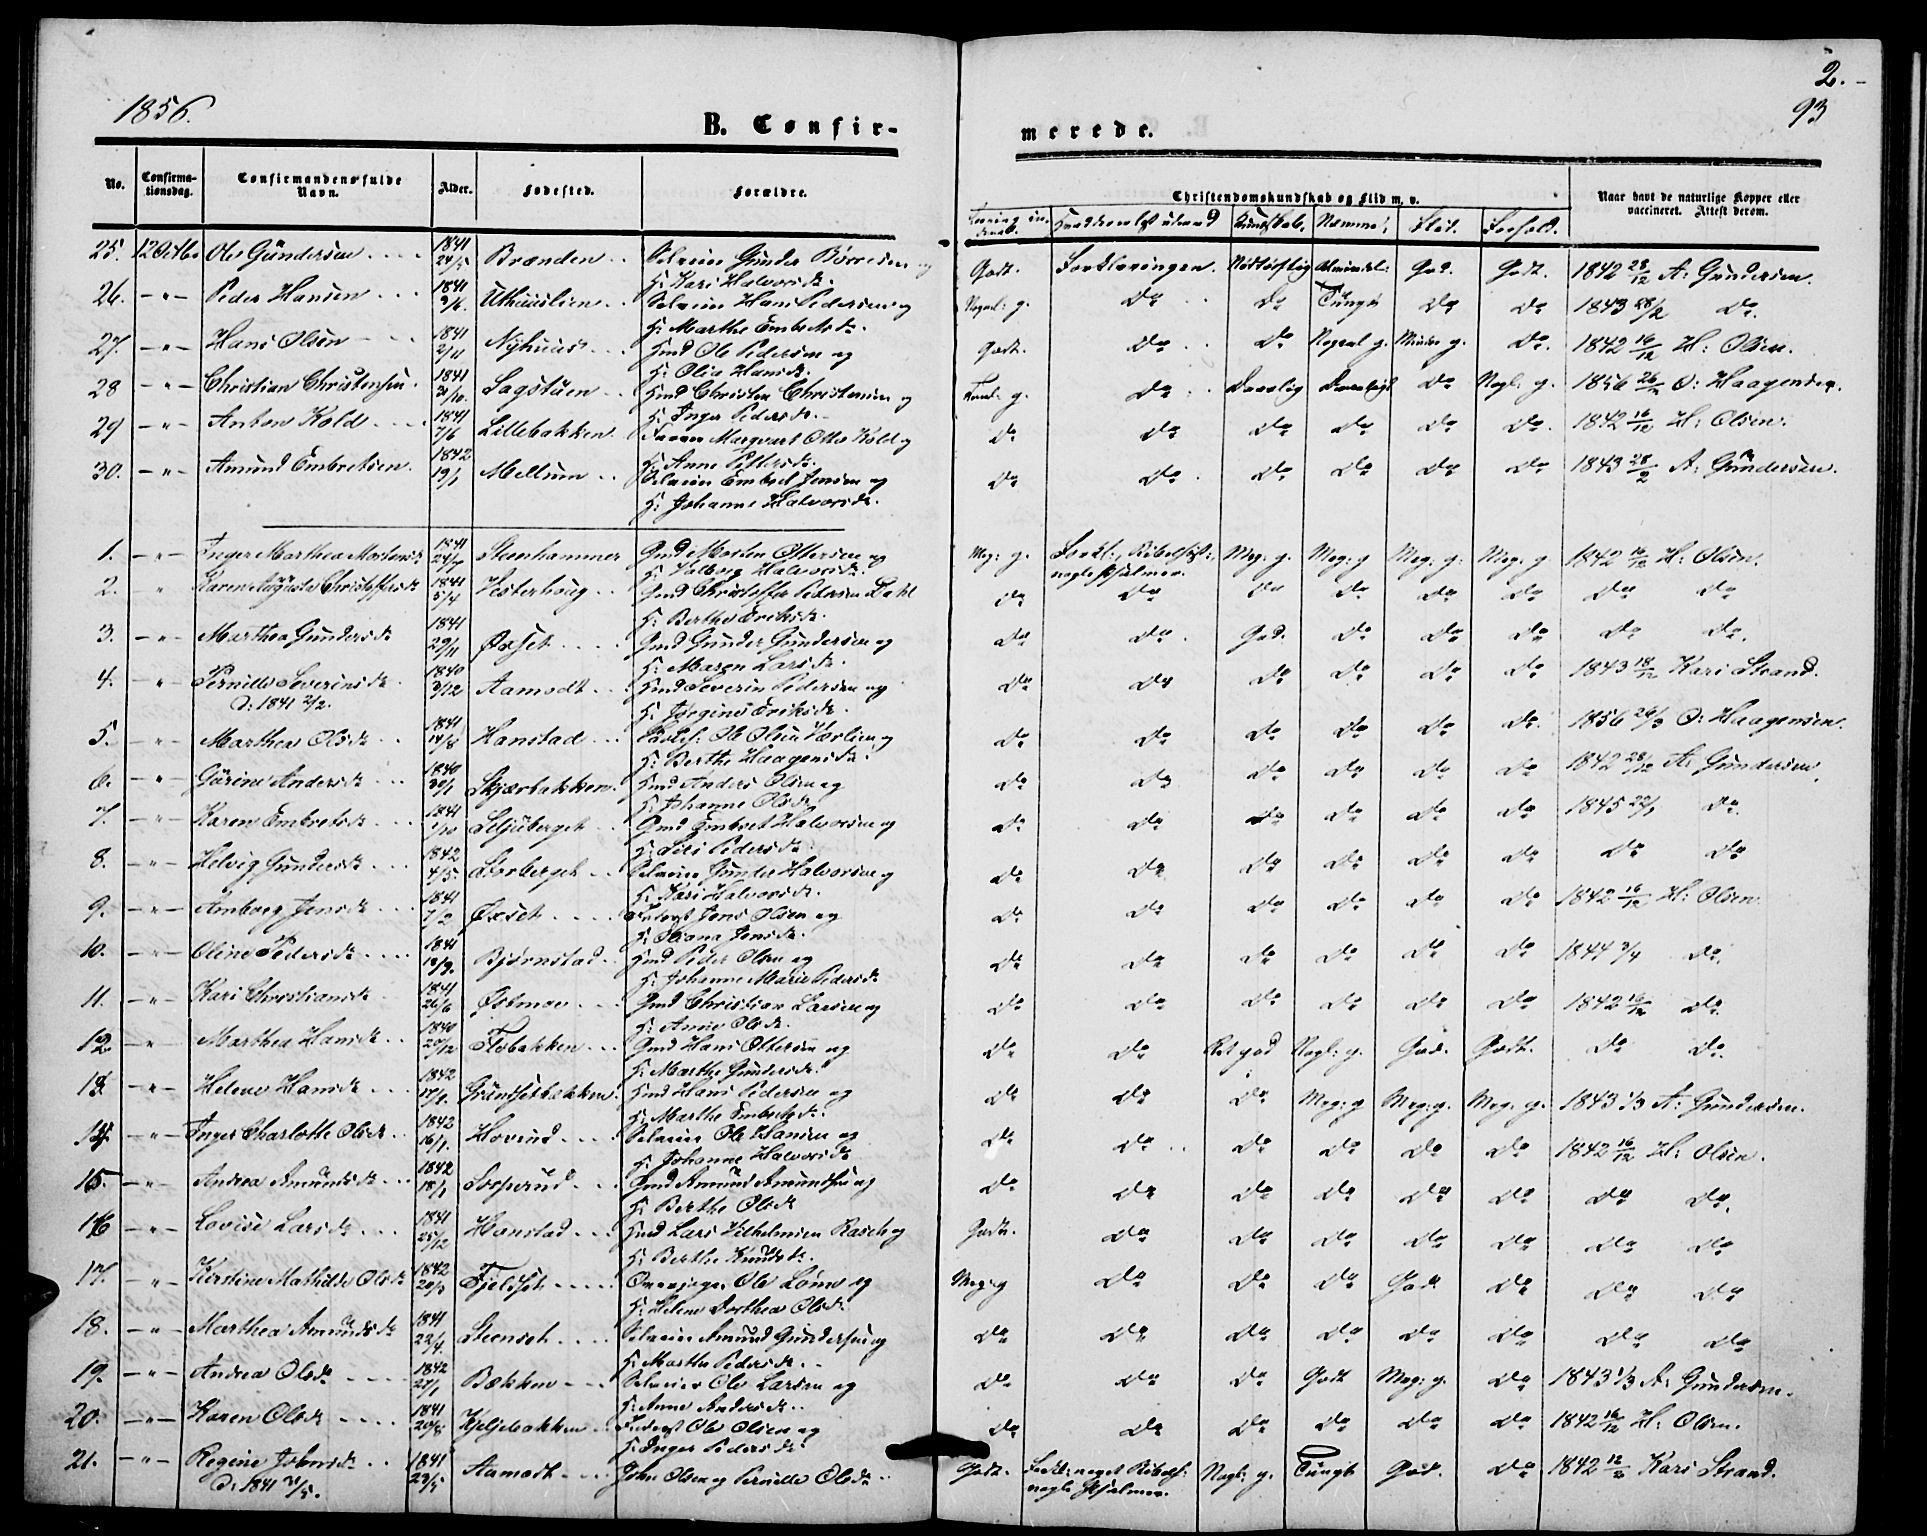 1856.
2.
93
B. Confir-
merede.
No.
Confirma-
tionsdag.
Confirmandens fulde
Navn.
Alder.
Fødested.
Forældre.
Christendomskundskab og Flid m. v.
Naar havt de naturlige Kopper eller
vaccineret. Attest derom.
Kundskab. Nemme. Flid. Forhold.
25. 12 Octbr Ole Gundersen 1841 24/5 Brænden Selveier Gunder Børresen og
H: Kari Halvorsdr. Godt. Forklaringen. Nødtørftig Almindel: God. Godt. 1842 28/12 A: Gundersen.
26. -"- Peder Hansen 1841 9/6. Uthuuslien Selveier Hans Pedersen og
H: Marthe Embretsdr. Nogenl: g. Do Do Tungt Do Do 1843 28/2 Do.
27. -"- Hans Olsen 1841 2/11 Nyhuus Hmd Ole Pedersen og
H: Olia Hansdr. Godt. Do Do Nogenl g. Minder g. Do. 1842 16/12 H: Olsen.
28 -"- Christian Christensen. 1841 21/10. Sagstuen Hmd Christen Christensen og
H: Inger Pedersdr. g. Do Daarlig Daarligt Do Nogl: g. 1856 O: Haagensen.
29 -"- Anton Kold 1841 7/6 Lillebakken Marqvart Otto Kold og
H: Anne Pettersdr. Do Do Do Do Do Do. 1842 16/12 H: Olsen.
30. -"- Amund Embretsen. 1842 19/1 Mellum Selveier Embret Jensen og
H: Johanne Halvorsdr. Do Do Do Do Do Do 1843 28/2 A: Gundersen.
1. -"- Inger Marthea Mortensdr 1841 Steenhammer Gmd Morten Ottersen og
H: Valborg Halvorsdr. Meg: g. Forkl:, Bibelhist:,
nogle Psalmer. Meg: g. Meg: g Meg: g: Meg: g 1842 16/12 H: Olsen.
2. " Karen Augusta Christoffersdr 1841 5/4 Vesterhaug Gmd Christoffer Pedersen Dahl
H: Berthe Eriksdr. Do Do Do Do Do Do Do Do
3. -"- Marthea Gundersdr 1841 29/11 Øxset Gmd Gunder Gundersen og
H: Maren Larsdr. Do Do God. Do Do Do Do Do.
4. " Pernille Severinsdr 1840 3/12 Aamodt Hmd Severin Pedersen og
D: 1841 2/2. H: Jørgine Eriksdr. Do Do Do Do Do Do 1843 18/12 Kari Strand.
5. " Marthea Olsdr 1841 14/8 Hanstad Ole Olsen og
H: Berthe Haagensdr. Do Do Do Do Do Do. 1856 26/9 O: Haagensen.
6. " Gurine Andersdr 1840 30/1 Skjærbakken. Hmd Anders Olsen og
H: Johanne Olsdr. Do Do Do Do Do Do 1842 28/12 A: Gundersen.
7. -"- Karen Embretsdr 1841 1/10 Seljeberget Gmd Embret Halvorsen og
H: Siri Pedersdr. Do Do Do Do Do Do 1845 22/1 Do.
8. -"- Helvig Gundersdr 1842 4/5 Storberget Selveier Gunder Halvorsen og
H: Kari Halvorsdr. Do Do Do Do Do Do Do Do
9. -"- Amborg Jensdr 1841 7/2 Øxset Inderst Jens Olsen og
H: Oleana Jensdr. Do Do Do Do Do Do 1842 16/12 H: Olsen.
10. -"- Oline Pedersdr 1841 18/9. Bjørnstad Hmd Peder Olsen og
H: Johanne Marie Pedersdr Do Do Do Do Do Do 1844 3/4 Do.
11. -"- Kari Christiansdr 1841 26/6 Østmoe Gmd Christian Larsen og
H: Anne Olsdr. Do Do Do Do Do Do 1842 16/12 Do.
12 -"- Marthea Hansdr 1840 20/12 Flobakken Gmd Hans Ottersen og
H: Marthe Gundersdr. Do Do Ret god Nogl: g. God. Godt. Do Do.
13. -"- Helene Hansdr 1842 17/2. Grundsetbakken Hmd Hans Pedersen og
H: Marthe Embretsdr. Do Do Do Meg: g Meg: g. Meg. g. 1843 1/3 A: Gundersen.
14. -"- Inger Charlotte Olsdr 1842 16/1. Hovind Selveier Ole Hansen og
H: Johanne Halvorsdr Do Do Do Do Do Do 1842 16/12 H: Olsen.
15. -"- Andrea Amundsdr 1842 18/1 Sorperud Gmd Amund Amundsen og
H: Berthe Olsdr Do Do Do Do Do Do Do Do.
16 -"- Lovise Larsdr 1841 25/12 Hanstad Hmd Lars Vilhelmsen Rasch og
H: Berthe Knudsdr. Godt. Do Do Do Do Do Do Do
17. -"- Kirstine Mathilde Olsdr 1842 20/3 Fjeldset Ole Lome og
H: Helene Dorthea Olsdr Meg: g Do Do Do Godt Do Do Do
18. -"- Marthea Amundsdr 1841 22/4. Steenset Selveier Amund Gundersen og
H: Marthe Pedersdr. Do Do Do Do Do Do Do Do
19. -"- Andrea Olsdr 1842 27/1 Bækken Selveier Ole Larsen og
H: Anne Andersdr. Do Do Do Godt Meg: g. Do 1843 1/3 A: Gundersen.
20. -"- Karen Olsdr 1841 20/8 Kjeljebakken Inderst Ole Olsen og
H: Inger Pedersdr. Do Do Do Do Do Do 1842 16/12 H: Olsen.
21. -"- Regine Johnsdr 1841 23/5 Aamodt John Olsen og Pernille Olsdr
D: 1841 31/5. Godt. Forkl: noget Bibelh:
nogle Psalmer. Nogl: g. Tungt God. Do 1842 Kari Strand.